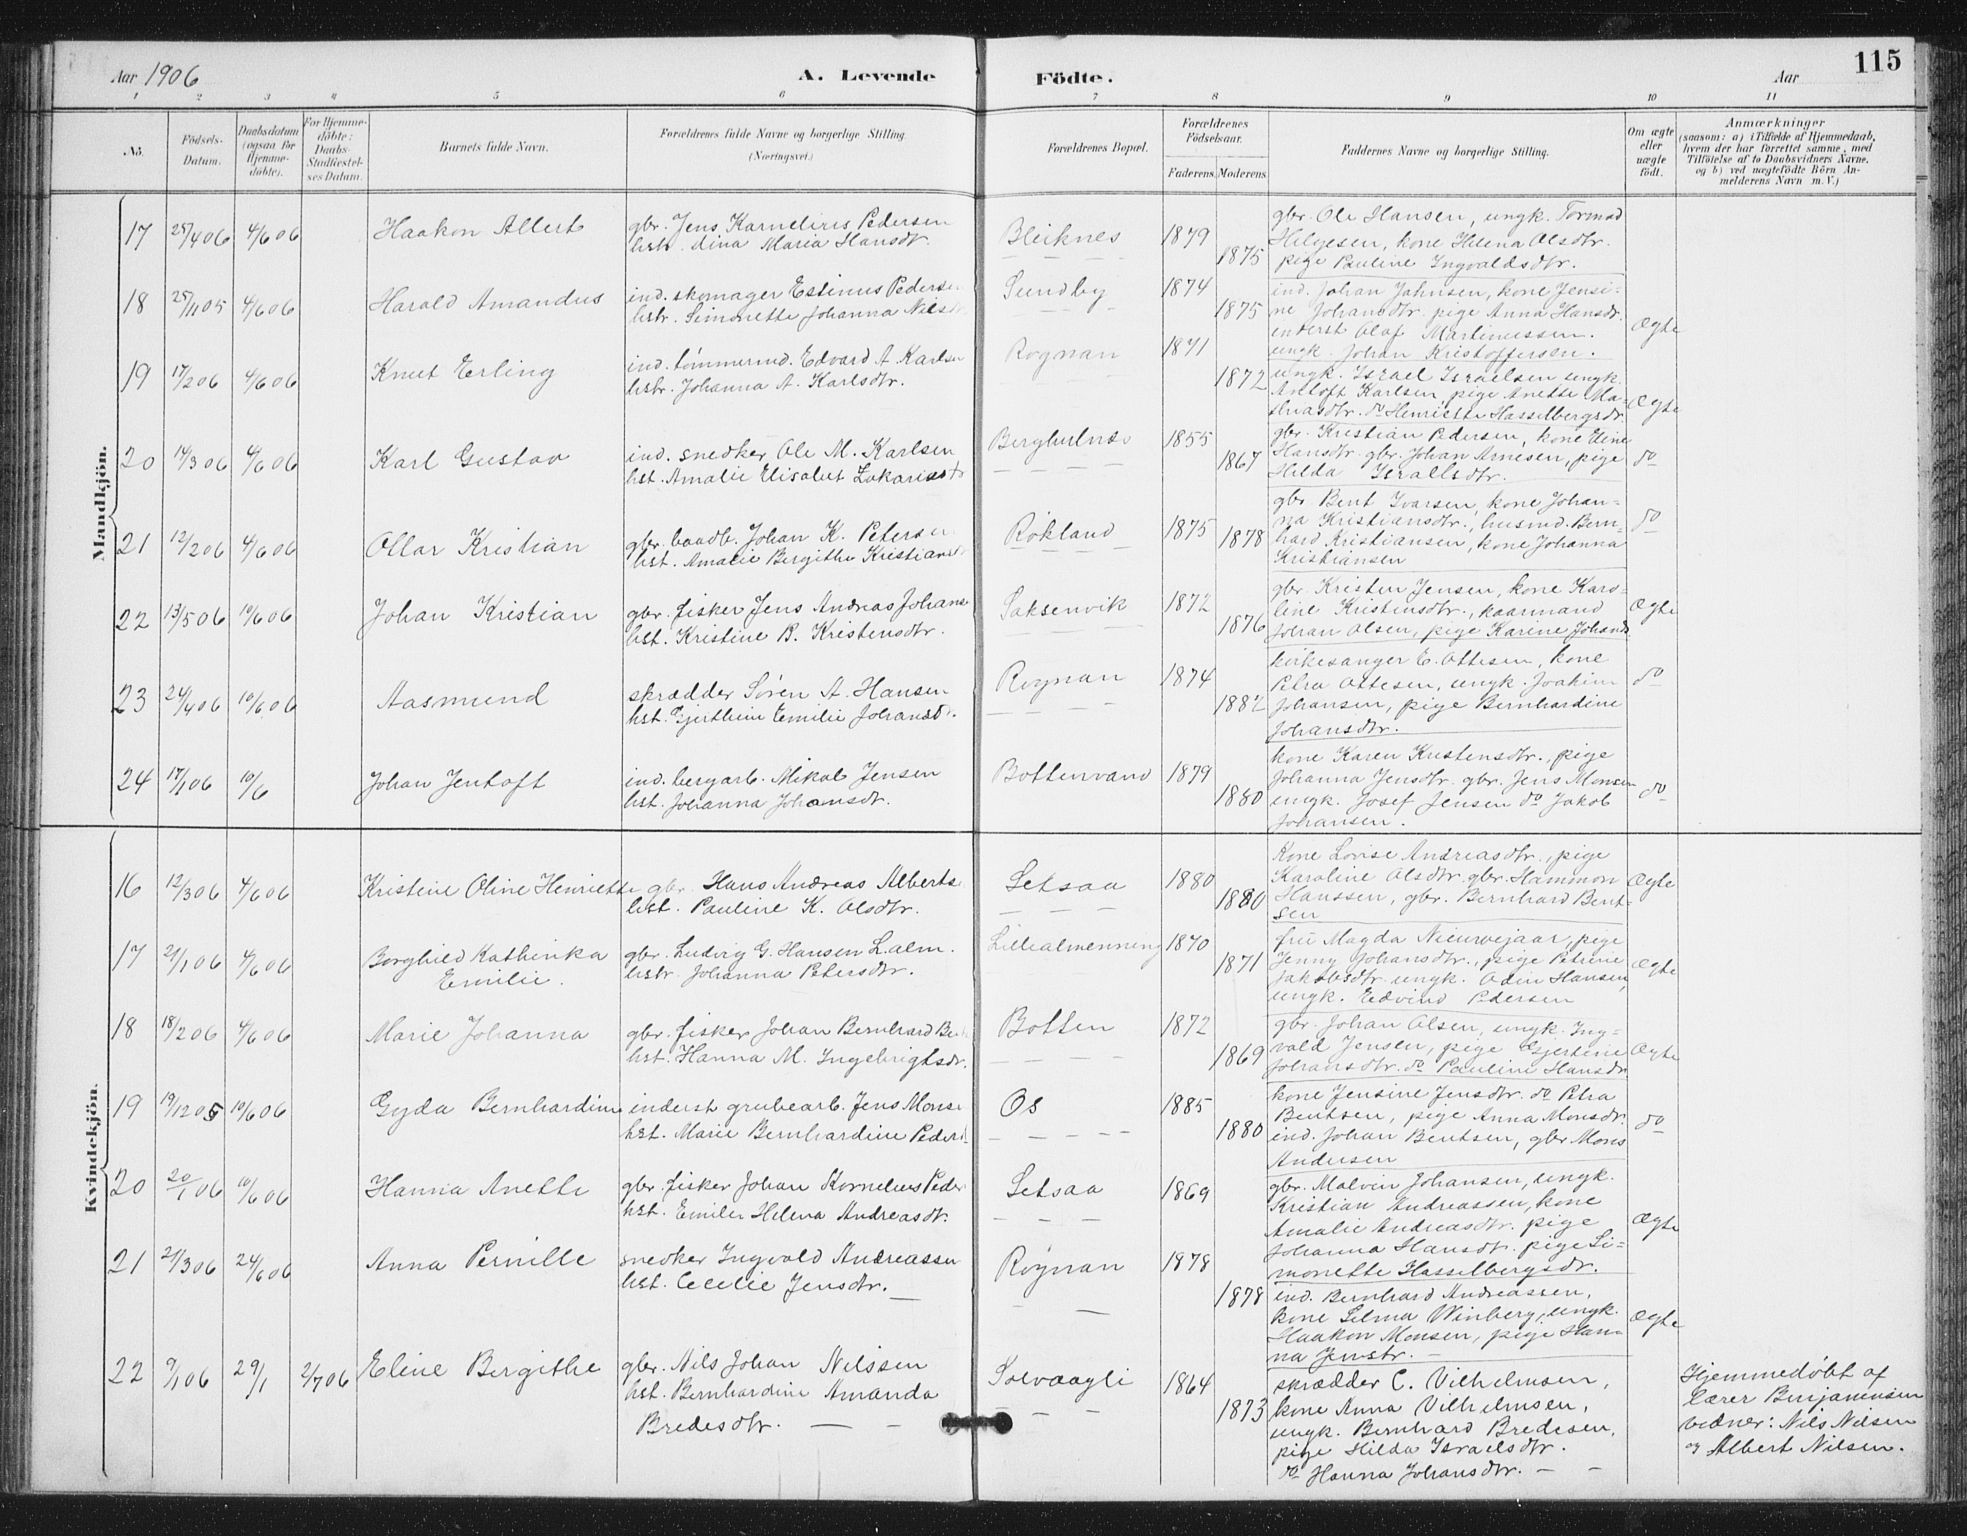 Aar 1906
A. Levende Födte.
Aar
115
1 2 3 4 5 6 7 8 9 10 11
No.
Födsels-Datum.
Daabsdatum (ogsaa for Hjemme-döbte).
For Hjemme-döbte: Daabs-Stadfæstel-ses Datum.
Barnets fulde Navn.
Forældrenes fulde Navne og borgerlige Stilling. (Næringsvei.)
Forældrenes Bopæl.
Forældrenes Födselsaar.
Faderens. Moderens.
Faddernes Navne og borgerlige Stilling.
Om ægte eller uægte födt.
Anmærkninger
(saasom: a) i Tilfælde af Hjemmedaab, hvem der har forrettet samme, med Tilföielse af to Daabsvidners Navne, og b) ved uægtefödte Börn An-melderens Navn m. V.)
Mandkjön.
17 25/4 06 4/6 06 Haakon Albert
gbr. Jens Kornelius Pedersen
hstr. Dina Maria Hansdtr.
Bleiknes 1879 1875
gbr. Ole Hansen, ungk. Tormod
Helgesen, kone Helena Olsdtr.
pige Pauline Ingvaldsdtr.
18 25/11 05 4/6 06 Harald Amandus
ind. skomager Estinus Pedersen
hstr. Simonette Johanna Nilsdtr
Sundby 1874 1875
ind. Johan Johnsen, kone Jensi-
ne Johansdtr. pige Anna Hansdr.
inderst Olaf Martinussen.
ungk. Johan Kristoffersen.
Ægte
19 17/2 06 4/6 06 Knut Erling
ind. tømmermd. Edvard A. Karlsen
hstr. Johanna A. Karlsdtr.
Rognan 1871 1872
ungk. Israel Israelsen ungk.
Antloft Karlsen, pige Anette Ma-
thiasdtr. do Henriette Hasselbergsdr.
Ægte
20 14/3 06 4/6 06 Karl Gustav
ind. snedker Ole M. Karlsen
hst. Amalie Elisabet Zakariasdtr
Berghulnæs 1855 1867
gbr. Kristian Pedersen, kone Eline
Hansdtr. gbr. Johan Arnesen, pige
Hilda Israelsdtr.
do
21 12/2 06 4/6 06 Ollar Kristian
gbr. baadb. Johan K. Petersen
hst. Amalie Bergithe Kristiansdtr
Røkland 1875 1878
gbr Bent Ivarsen, kone Johan-
na Kristiansdtr., husmd. Bern-
hard Kristiansen, kone Johanna
Kristiansen
do
22 13/5 06 10/6 06 Johan Kristian
gbr. fisker Jens Andreas Johans
hst. Kristine B. Kristensdtr.
Saksenvik 1872 1876
gbr. Kristen Jensen, kone Karo-
line Kristensdtr., kaarmand
Johan Olsen, pige Karine Johansd
Ægte
23 24/4 06 10/6 06 Aasmund
skrædder Søren A. Hansen
hst. Gjertine Emilie Johansdtr.
Rognan 1874 1882
kirkesanger E. Ottesen, kone
Petra Ottesen, ungk. Joakim
Johansen, pige Bernhardine
Johansdtr.
do
24 17/1 06 10/6 Johan Jentoft
ind. bergarb. Mikal Jensen
hst. Johanna Johansdtr.
Bottenvand 1879 1880
kone Karen Kristensdtr., pige
Johanna Jensdtr. gbr. Jens Monsen
ungk. Josef Jensen do Jakob
Johansen.
do
Kvindekjön.
16 12/3 06 4/6 06 Kristine Oline Henriette
gbr. Hans Andreas Alberts
hst. Pauline K. Olsdtr.
Setsaa 1880 1880
Kone Lovise Andreasdtr., pige
Karoline Olsdtr. gbr. Hammon
Hanssen, gbr. Bernhard Bent-
sen
Ægte
17 21/1 06 4/6 06 Borghild Kathinka
Emilie.
gbr. Ludvig G. Hansen L.alm.
hstr. Johanna Petersdtr.
Lillealmenning 1870 1871
frü Magda Nieuwejaar, pige
Jenny Johansdtr., pige Petrine
Jakobsdtr. ungk. Odin Hansen,
ungk. Eedvind Pedersen
Ægte
18 18/2 06 4/6 06 Marie Johanna
gbr. fisker Johan Bernhard Be
hst. Hanna M. Ingebrigtsdr.
Botten 1872 1869
gbr. Johan Olsen, ungk. Ing-
vald Jensen, pige Gjertine
Johansdtr. do Pauline Hansdr.
Ægte
19 19/12 05 10/6 06 Gyda Bernhardine
inderst grubearb. Jens Monse
hst. Marie Bernhardine Peders
Os 1885 1880
kone Jensine Jensdtr. do Petra
Bentsen, pige Anna Monsdtr.
ind. Johan Bentsen, gbr Mons
Andersen
do
20 20/1 06 10/6 06 Hanna Anette
gbr. fisker Johan Kornelius Peder
hst. Emilie Helena Andreasdtr.
Setsaa 1869
gbr. Malvin Johansen, ungk.
Kristian Andreassen, kone
Amalie Andreasdtr. pige
Johanna Hansdtr. pige Si-
monette Hasselbergsdr.
Ægte
21 21/3 06 24/6 06 Anna Pernille
snedker Ingvald Andreassen
hst. Cecelie Jensdtr.
Rognan 1878 1878
ind. Bernhard Andreassen,
kone Selma Winberg, ungk.
Haakon Monsen, pige Han-
na Jenstr.
Ægte
22 9/1 06 29/1 2/7 06 Eline Bergithe
gbr. Nils Johan Nilssen
hst. Bernhardine Amanda
Bredesdtr.
Solvaagli 1864 1873
skrædder C. Vilhelmsen,
kone Anna Vilhelmsen,
ungk. Bernhard Bredesen,
pige Hilda Israelsdtr.
do Hanna Johansdtr.
Hjemmedøbt af
lærer Benjaminsen
vidner: Nils Nilsen
og Albert Nilsen.